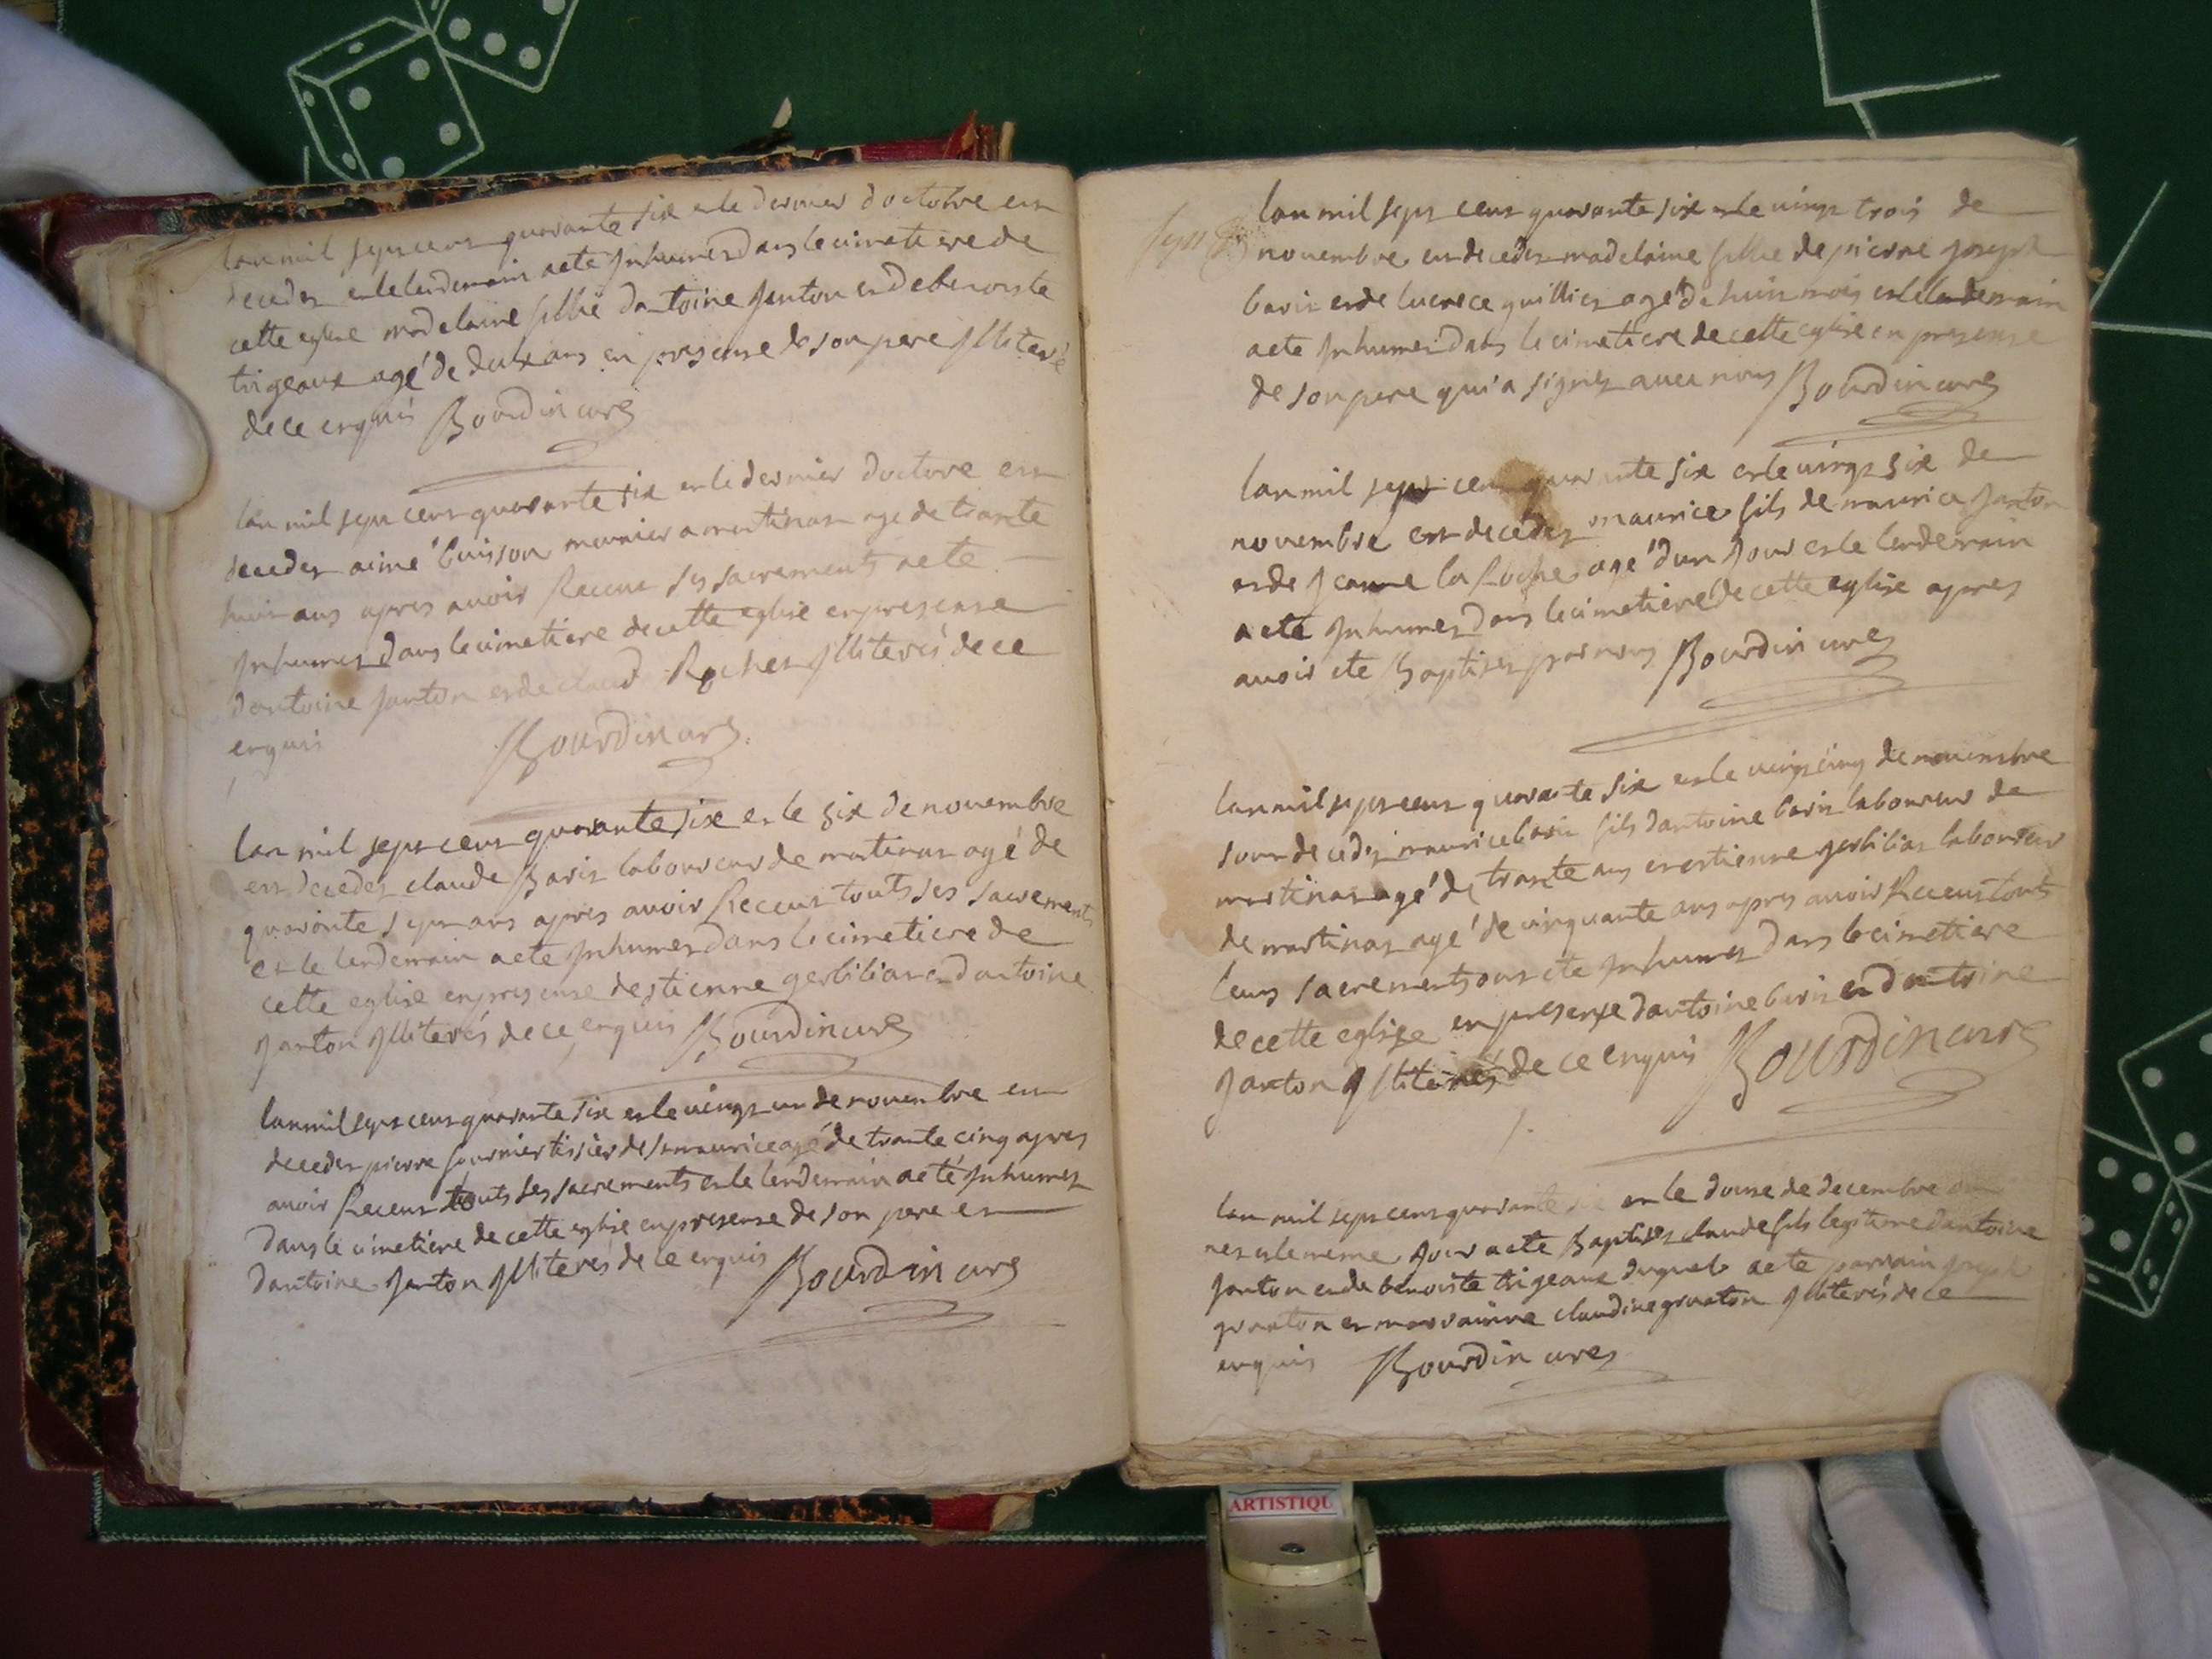 lan mil sept cent quarante six et le dernier doctobre est
decedez et le lendemain a eté Jnhumez dans le cimetiere de
cette eglise madelaine fillie dantoine Janton et de benoiste
trigeaux agé de deux ans en presense de son pere Jlliteré
de ce enquis Bourdin curé
lan mil sept cent quarante six et le dernier doctore est
decedez aimé buisson meunier a martinas age de trante
huit ans apres avoir Receut ses sacrements a eté
Jnhumez dans le cimetiere de cette eglise en presense
dantoine Janton et de claud Rochez Jlliterés de ce
enquis Bourdin curé
lan mil sept cent quarante six et le six de novembre
est decedez claude Baris laboureur de martinas agé de
quarante sept ans apres avoir Receut touts ses sacrements
et le lendemain a eté Jnhumez dans le cimetiere de
cette eglise en presense destienne gerbilias et dantoine
Janton Jlliterés de ce enquis Bourdin curé
lan mil sept cent quarante six et le vingt un de novembre est
decedez pierre fournier tissier de st maurice agé de trante cinq apres
avoir Receut touts ses sacrements et le lendemain a eté Jnhumez
dans le cimetiere de cette eglise en presense de son pere et
dantoine Janton Jlliterés de ce enquis Bourdin curé
lan mil sept cent quarante six et le vingt trois de
novembre est decedez madelaine fillie de pierre joseph
baris et de lucrece guillier agé de huit mois et le lendemain
a eté Jnhumez dans le cimetiere de cette eglise en presense
de son pere qui a signez avec nous Bourdin curé
lan mil sept cent quarante six et le vingt six de
novembre est decedez maurice fils de maurice Janton
et de Jeanne la Roche agé dun Jour et le lendemain
a eté Jnhumez dans le cimetiere de cette eglise apres
avoir ete Baptisez par nous Bourdin curé
lan mil sept cent quarante six et le vingt cinq de novembre
sont decedez maurice baris fils dantoine baris laboureur de
martinas agé de trante ans et estienne gerbilias laboureur
de martinas agé de cinquante ans apres avoir Receus touts
leurs sacrements ont ete Jnhumez dans le cimetiere
de cette eglise en presense dantoine baris et dantoine
Janton Jlliterés de ce enquis Bourdin curé
lan mil sept cent quarante six et le douse de decembre est
nez et le meme Jour a ete Baptisez claude fils legitime dantoine
Janton et de benoiste trigeaux duquel a ete parrain joseph
gruaton et marrainne claudine gruaton Jlliterés de ce
enquis Bourdin curé
ARTISTIQU